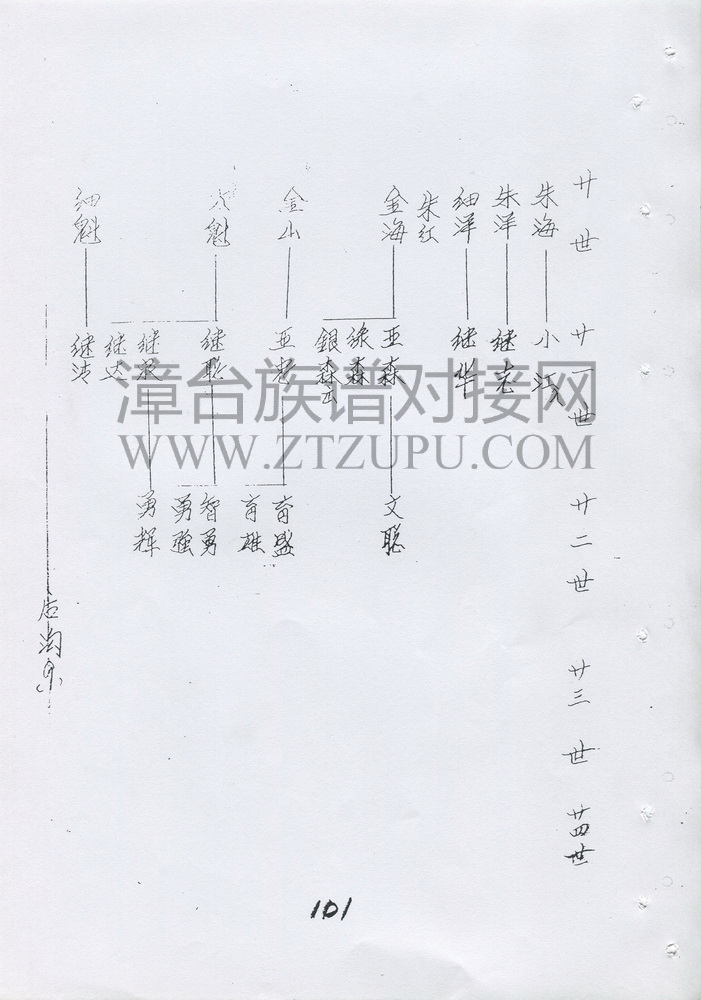 廿世
廿一世
廿二世
廿三世
廿四世
朱海
小
朱洋
继
细洋
继华
朱红
金海
亚森
森
銀森
文聪
金山
亚忠
育盛
育雄
魁
继聪
继
继达
智勇
勇强
勇辉
细魁
继涛
漳台族谱对接网
WWW.ZTZUPU.COM
101